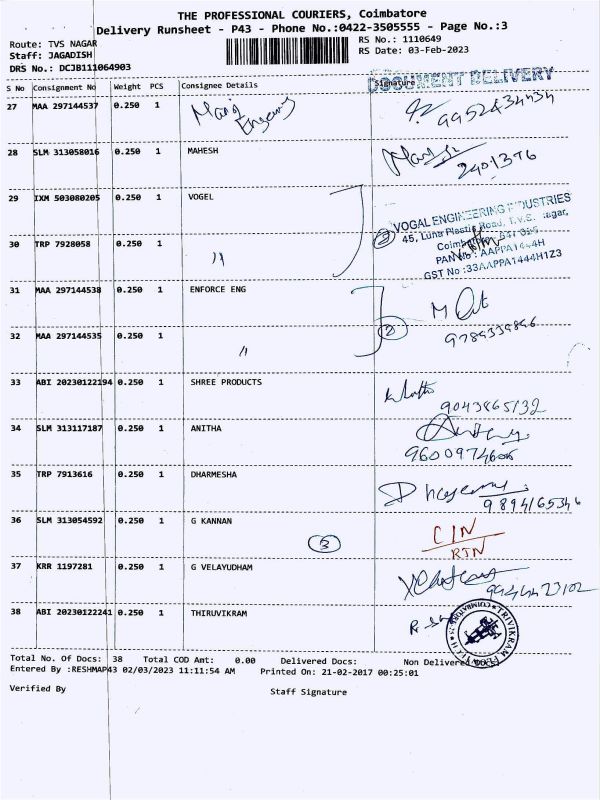 THE PROFESSIONAL COURIERS, Coimbatore
Delivery Runsheet - P43 - Phone No.:0422-3505555 - Page No.:3
Route: TVS NAGAR RS No.: 1110649
Staff: JAGADISH RS Date: 03-Feb-2023
DRS No.: DCJB111064903
DOCUMENT DELIVERY
S No Consignment No Weight PCS Consignee Details Signature
27 MAA 297144537 0.250 1 9952434434
28 SLM 313058016 0.250 1 MAHESH 2401376
29 IXM 503080205 0.250 1 VOGEL
VOGAL ENGINEERING INDUSTRIES
45, Luna Plastic Road, T.V.S. Nagar,
30 TRP 7928058 0.250 1 " 2
PAN No : AAPPA1444H
GST No :33AAPPA1444H1Z3
31 MAA 297144538 0.250 1 ENFORCE ENG
32 MAA 297144535 0.250 1 " 2 9789339896
33 ABI 20230122194 0.250 1 SHREE PRODUCTS 9043865132
34 SLM 313117187 0.250 1 ANITHA 9600974606
35 TRP 7913616 0.250 1 DHARMESHA 9894165346
36 SLM 313054592 0.250 1 G KANNAN 3 C/N
RTN
37 KRR 1197281 0.250 1 G VELAYUDHAM 9944423102
38 ABI 20230122241 0.250 1 THIRUVIKRAM
Total No. Of Docs: 38 Total COD Amt: 0.00 Delivered Docs: Non Delivered Docs:
Entered By :RESHMAP43 02/03/2023 11:11:54 AM Printed On: 21-02-2017 00:25:01
Verified By Staff Signature